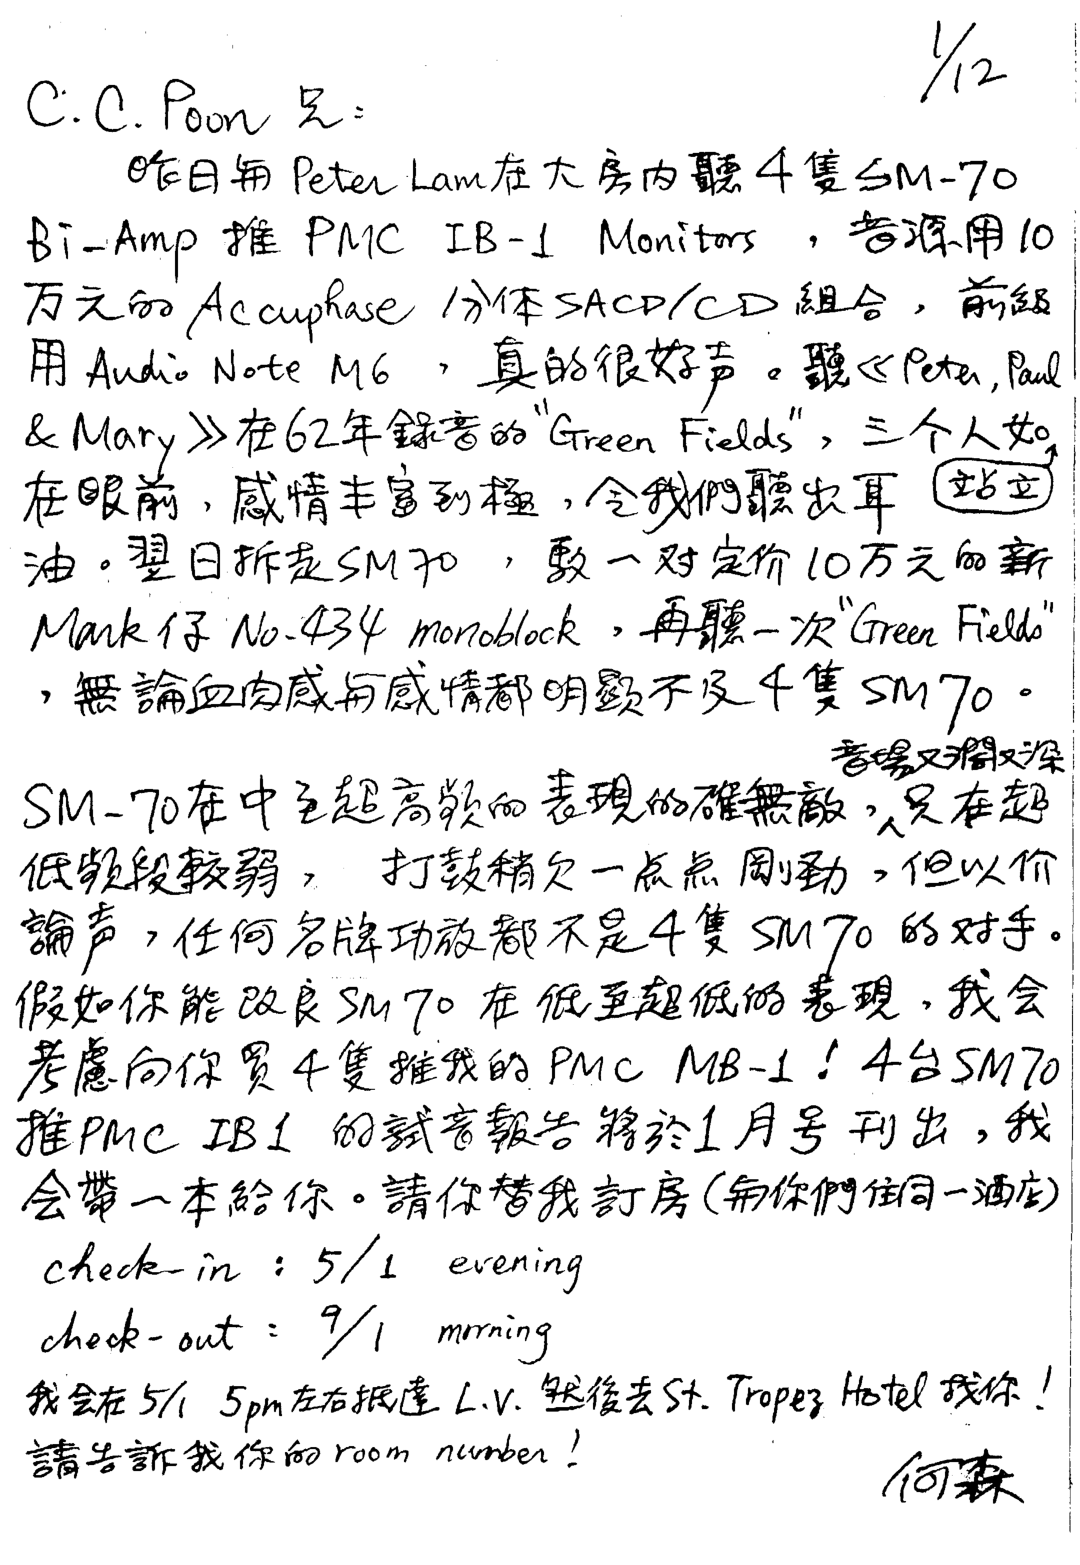 1/12
C.C. Poon 兄：
昨日與 Peter Lam 在大房內聽 4 隻 SM-70
Bi-Amp 推 PMC IB-1 Monitors，音源用 10
万元的 Accuphase 分体 SACD/CD 組合，前級
用 Audio Note M6，真的很好声。聽《Peter, Paul
& Mary》在 62 年錄音的 "Green Fields"，三个人如
站立
在眼前，感情丰富到極，令我們聽出耳
油。翌日拆走 SM70，駁一对定价 10 万元的新
Mark 仔 No.434 monoblock，再聽一次 "Green Fields"
，無論血肉感与感情都明顯不及 4 隻 SM70。
音場又濶又深
SM-70 在中至超高頻的表現的確無敵，只在超
低頻段較弱，打鼓稍欠一点点剛勁，但以价
論声，任何名牌功放都不是 4 隻 SM70 的对手。
假如你能改良 SM70 在低至超低的表現，我会
考慮向你買 4 隻推我的 PMC MB-1！4 台 SM70
推 PMC IB1 的試音報告將於 1 月号刊出，我
会帶一本給你。請你替我訂房（与你們住同一酒店）
check-in : 5/1 evening
check-out : 9/1 morning
我会在 5/1 5pm 左右抵達 L.V. 然後去 St. Tropez Hotel 找你！
請告訴我你的 room number！
何森